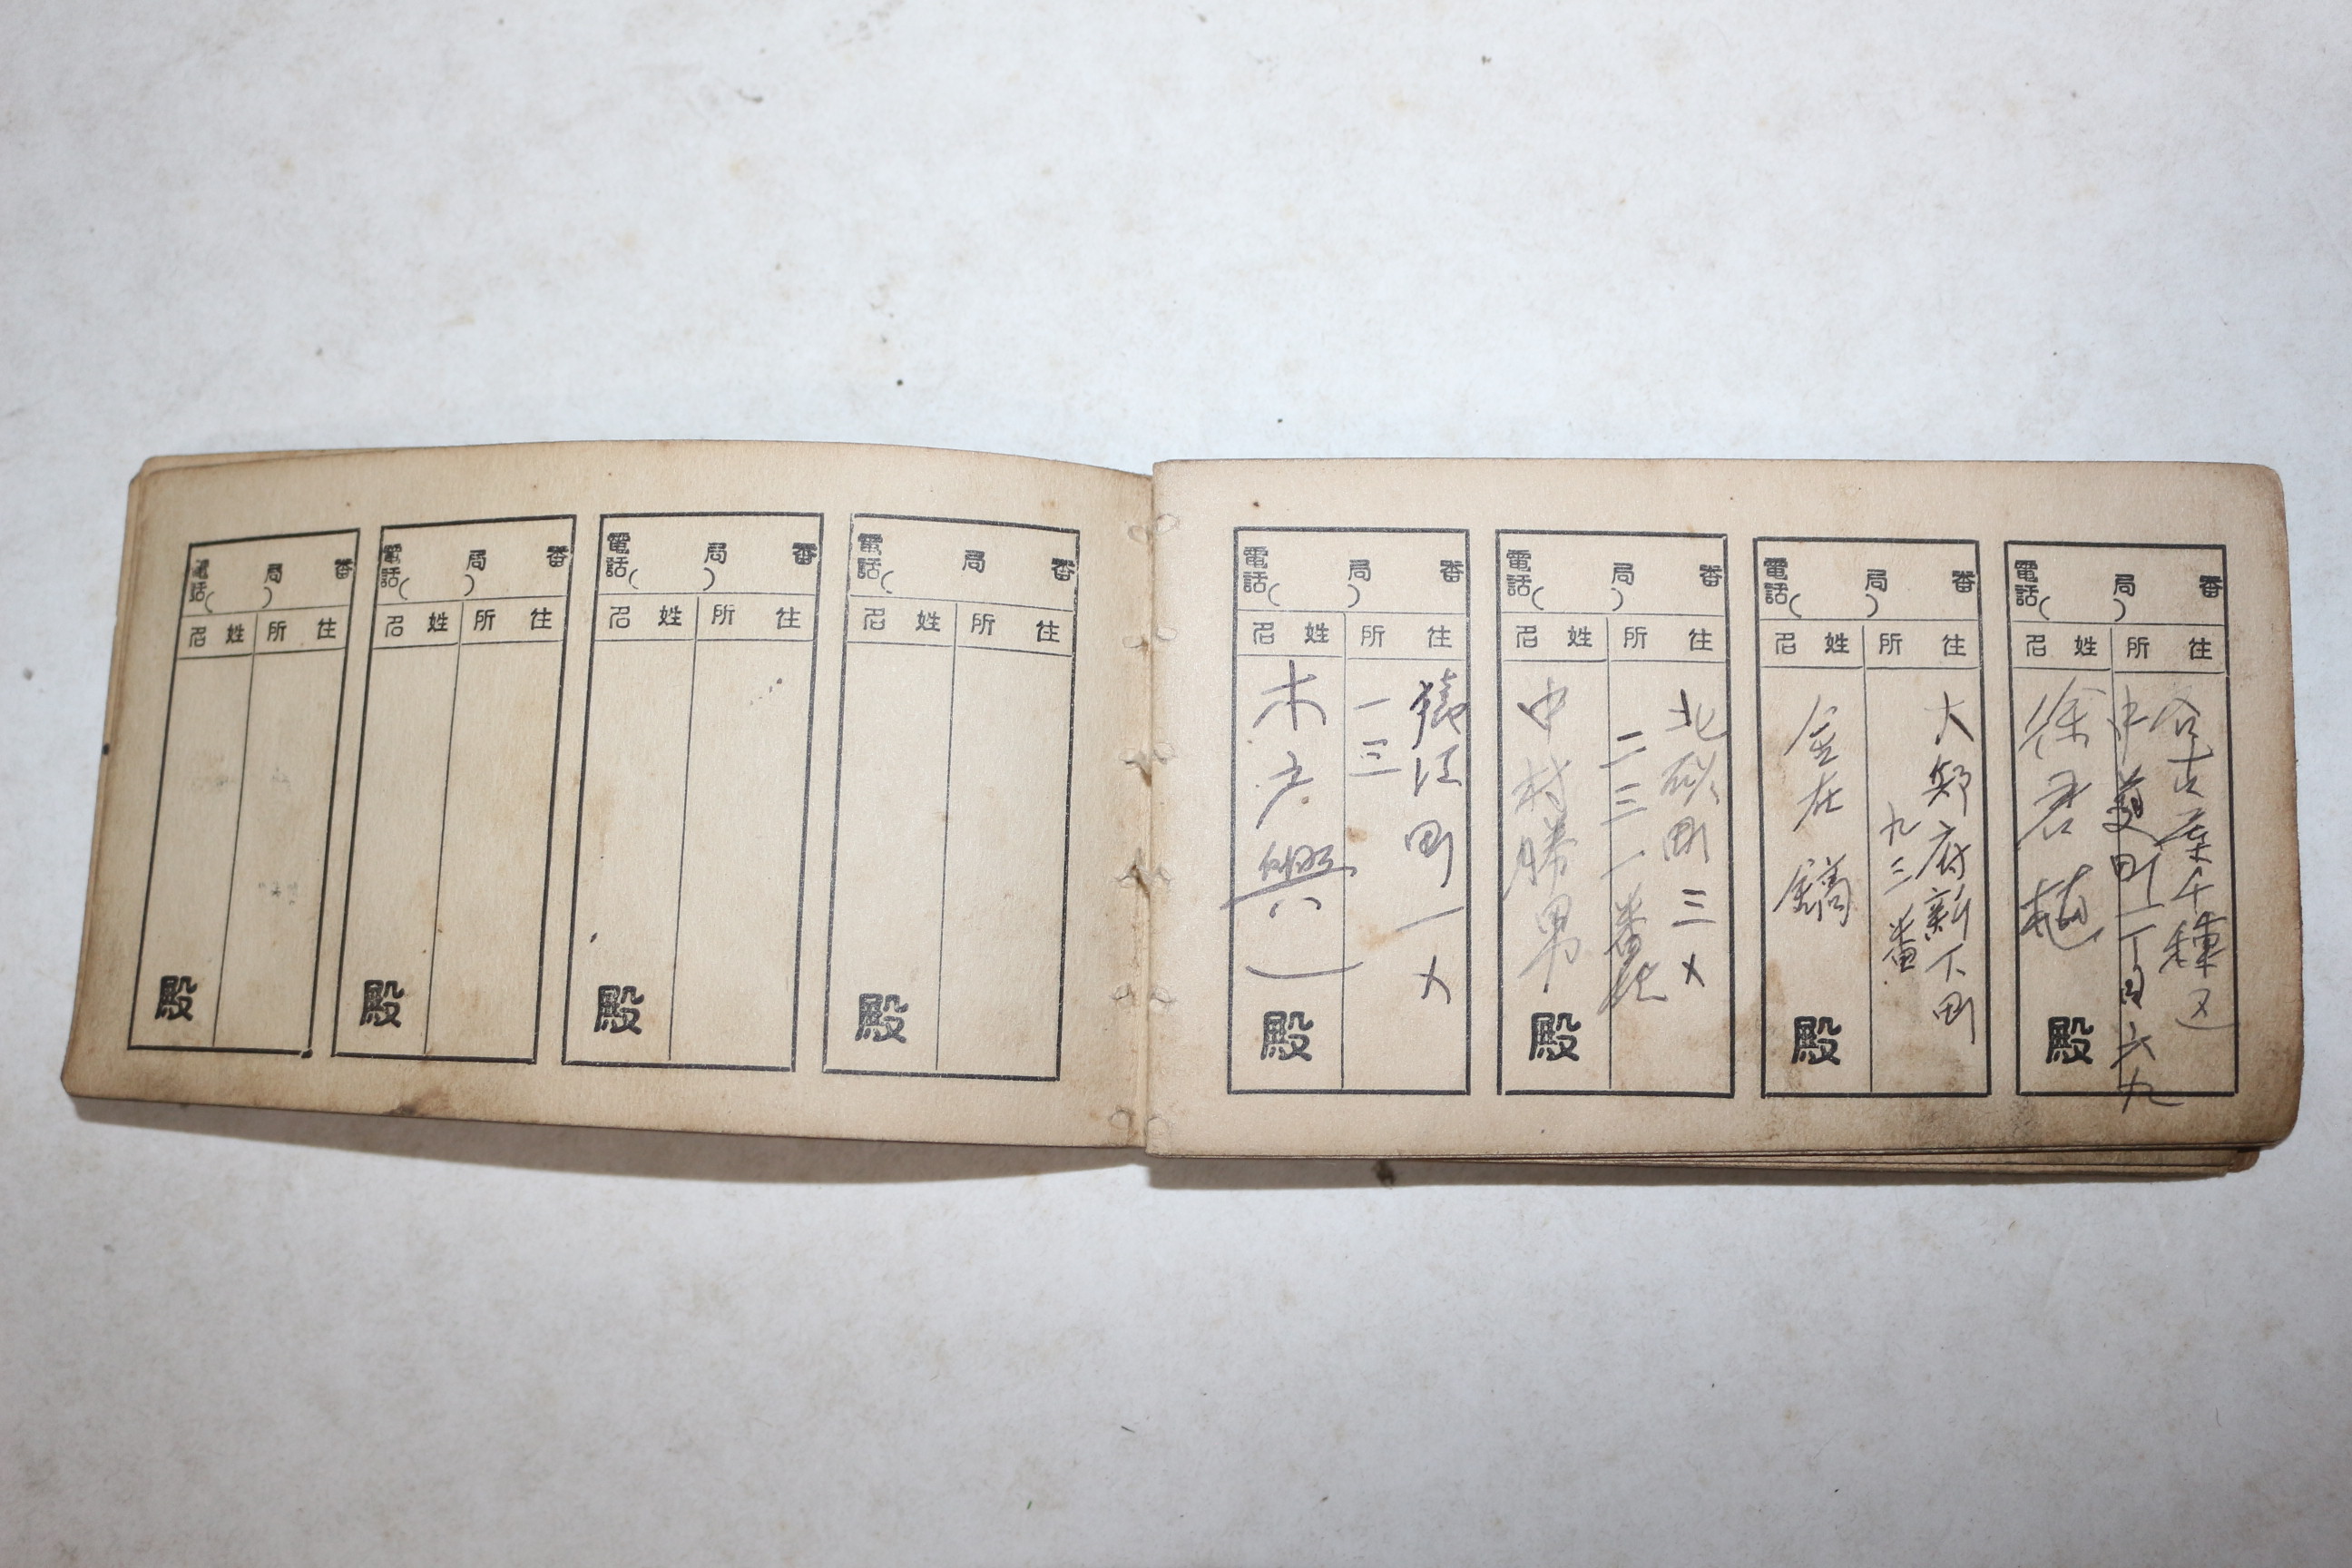 電話( 局) 番
住所 姓名
名古屋千種区
中道町一丁目六九
徐君
殿
電話( 局) 番
住所 姓名
大邱府新下町
九三番
金在鏑
殿
電話( 局) 番
住所 姓名
北砂町三ノ
二三一番地
中村勝男
殿
電話( 局) 番
住所 姓名
猿江町一ノ
一三
木戸興一
殿
電話( 局 番
住所 姓名
殿
電話( 局) 番
住所 姓名
殿
電話( 局) 番
住所 姓名
殿
電話( 局) 番
住所 姓名
殿